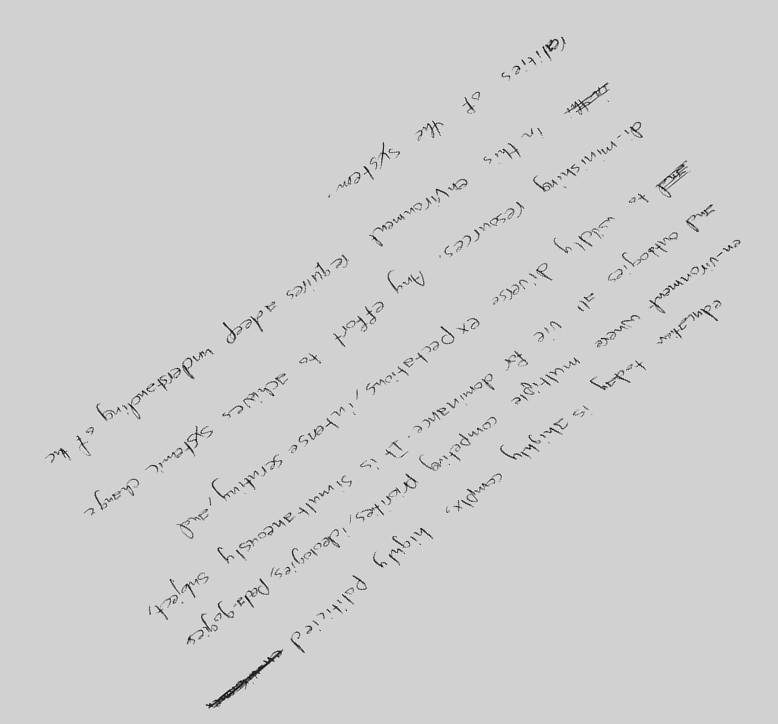 education today is ahighly complx, highly politicied
en-vironment where multiple competing priorities, ideologies, Peda-gogies
and ontologies all vie for dominance. It is simultaneously subject,
to wildly diverse expectations, intense scrutiny, and
di-minishing resources. Any effort to achives systemic change
in this environment requires adeep understanding of the
ralities of the system.